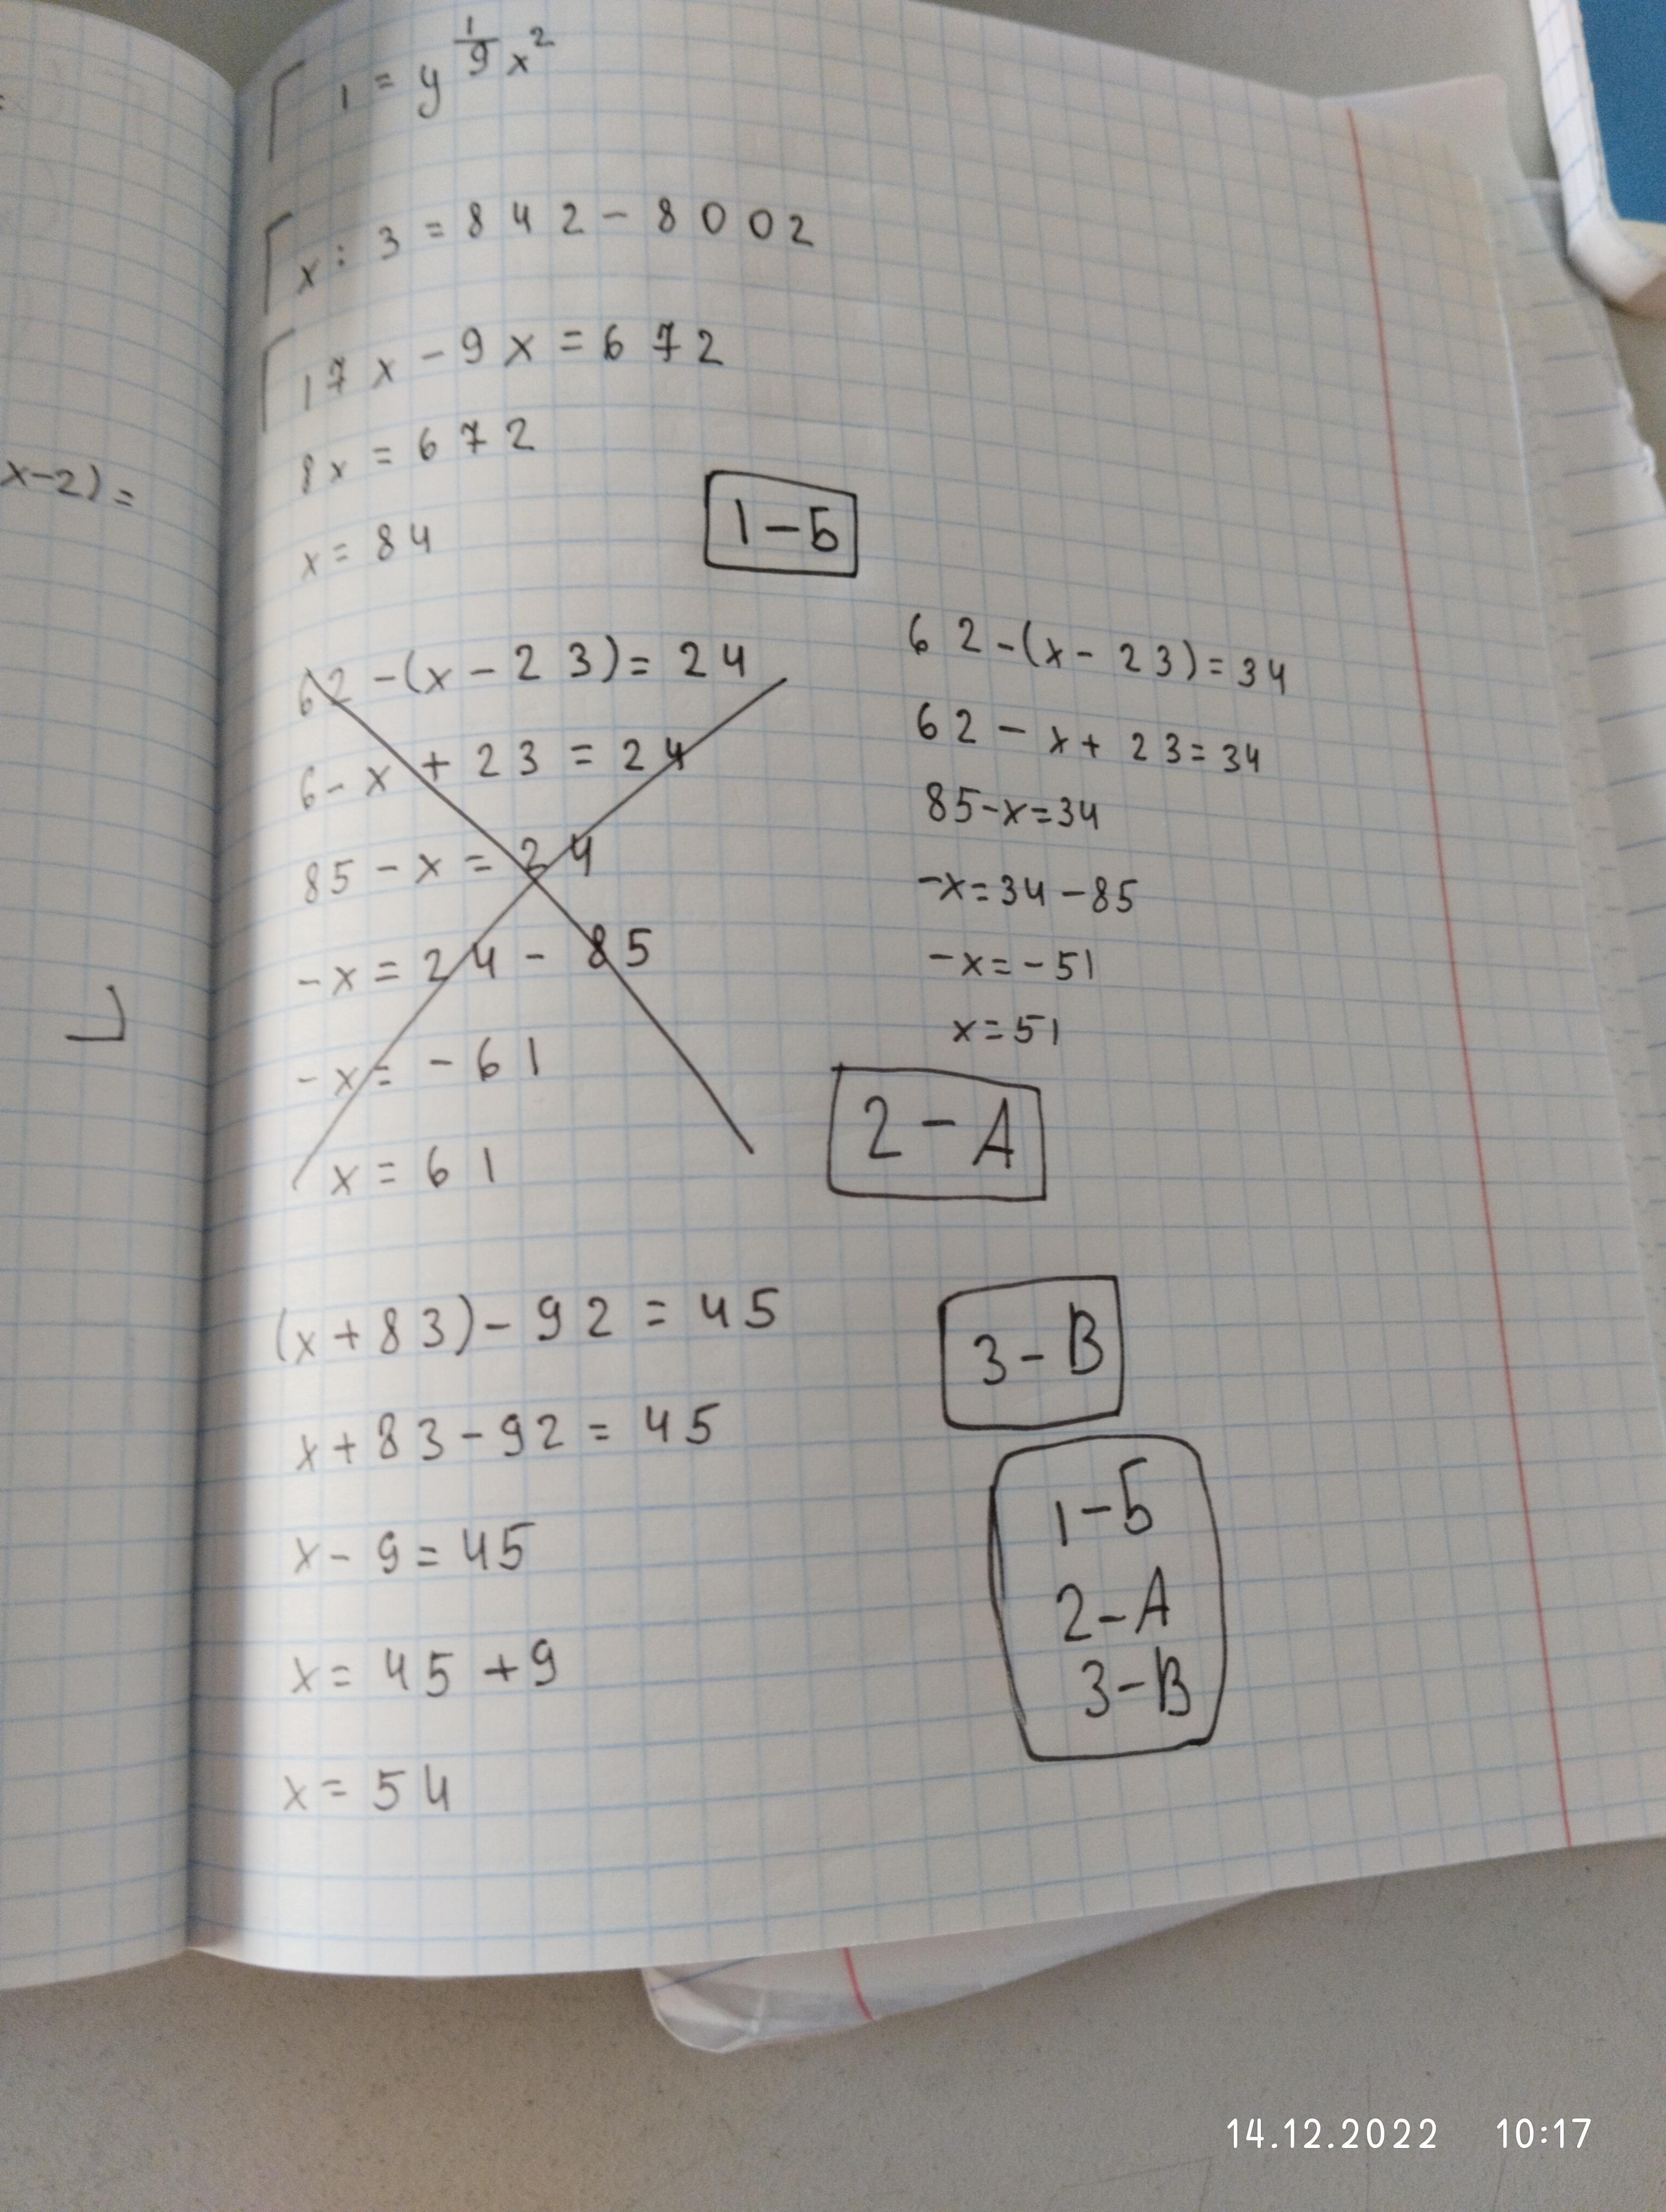 x-2)=
1 = y^(1/9) x²
x : 3 = 842 - 8002
17x - 9x = 672
8x = 672
x = 84
1-Б
62-(x-23)=24
6-x+23=24
85-x=24
-x=24-85
-x=-61
x=61
62-(x-23)=34
62-x+23=34
85-x=34
-x=34-85
-x=-51
x=51
2-А
(x+83)-92=45
x+83-92=45
x-9=45
x=45+9
x=54
3-В
1-Б
2-А
3-В
14.12.2022 10:17